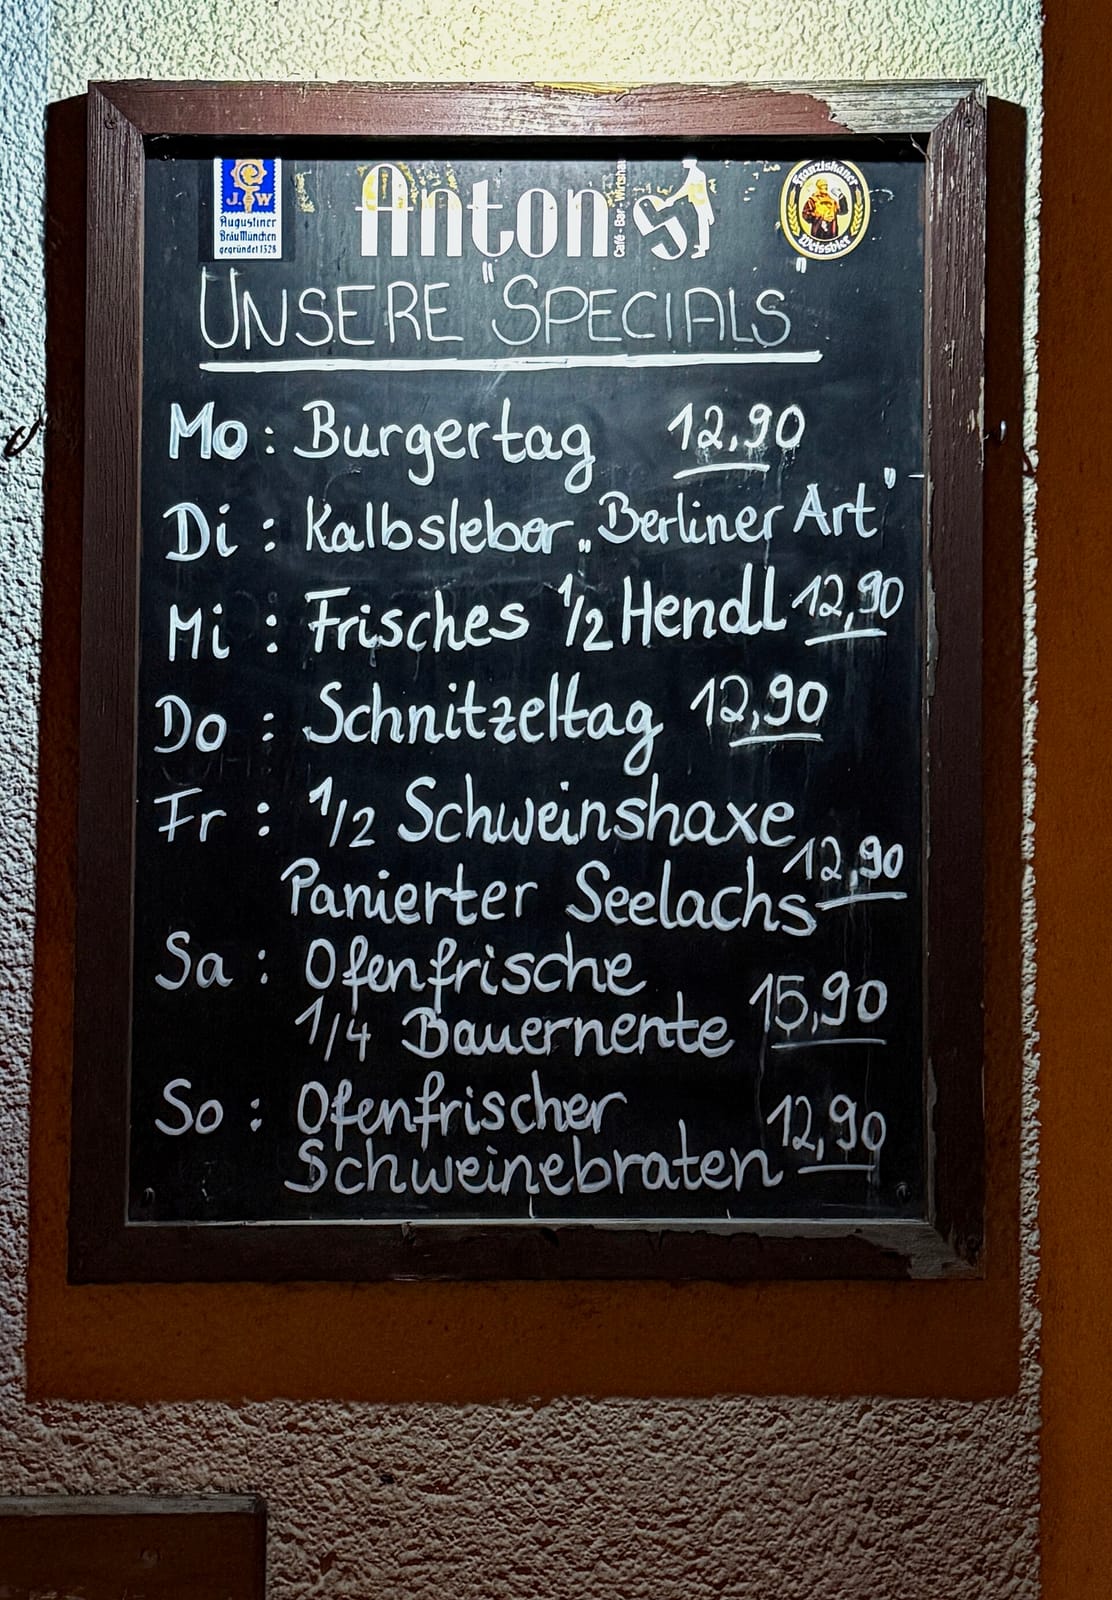 J. W
Augustiner
Bräu München
gegründet 1328
Anton's
Café - Bar - Wirtshaus
Franziskaner
Weissbier
UNSERE "SPECIALS"
Mo: Burgertag 12,90
Di: Kalbsleber „Berliner Art"
Mi: Frisches 1/2 Hendl 12,90
Do: Schnitzeltag 12,90
Fr: 1/2 Schweinshaxe
Panierter Seelachs 12,90
Sa: Ofenfrische
1/4 Bauernente 15,90
So: Ofenfrischer
Schweinebraten 12,90